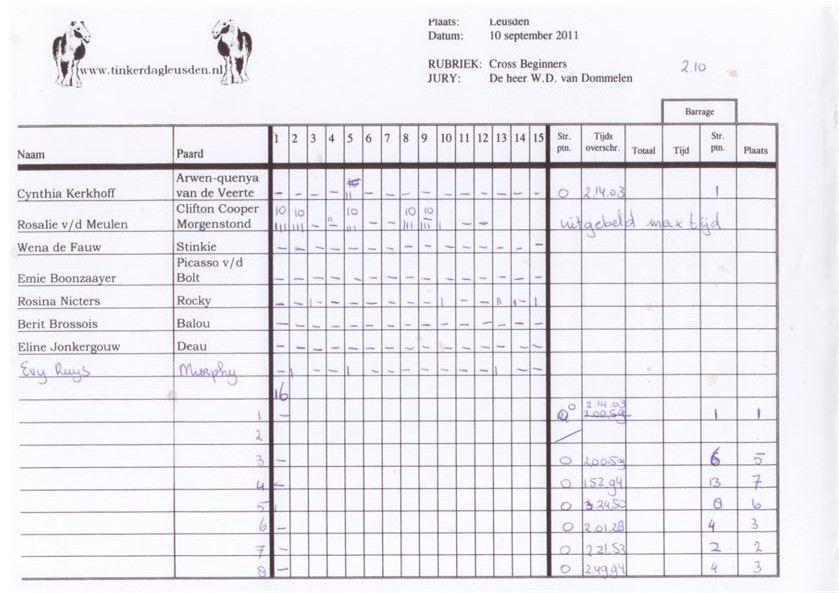 Plaats: Leusden
Datum: 10 september 2011
www.tinkerdagleusden.nl
RUBRIEK: Cross Beginners 2.10
JURY: De heer W.D. van Dommelen
Barrage
Naam Paard 1 2 3 4 5 6 7 8 9 10 11 12 13 14 15 Str. ptn. Tijds overschr. Totaal Tijd Str. ptn. Plaats
Cynthia Kerkhoff Arwen-quenya van de Veerte - - - - || - - - - - - - - - - 0 2.14.03 1
Rosalie v/d Meulen Clifton Cooper Morgenstond 10 ||| 10 ||| - || 10 ||| - - 10 ||| 10 ||| | - - uitgebeld max tijd
Wena de Fauw Stinkie - - - - - - - - - - - - - - -
Emie Boonzaayer Picasso v/d Bolt - - - - - - - - - - - - - - -
Rosina Nicters Rocky - - | - - - - - - | - - || | |
Berit Brossois Balou - - - - - - - - - - - - - - -
Eline Jonkergouw Deau - - - - - - - - - - - - - - -
Evy Ruys Murphy - | - - | - - - - | - - | - -
16
1 - 0 2.14.03 2.00.59 1 1
2
3 - 0 2.00.59 6 5
4 - 0 1.52.94 13 7
5 | 0 3 24.50 8 6
6 - 0 2.01.28 4 3
7 - 0 2 21.53 2 2
8 - 0 2.49.94 4 3